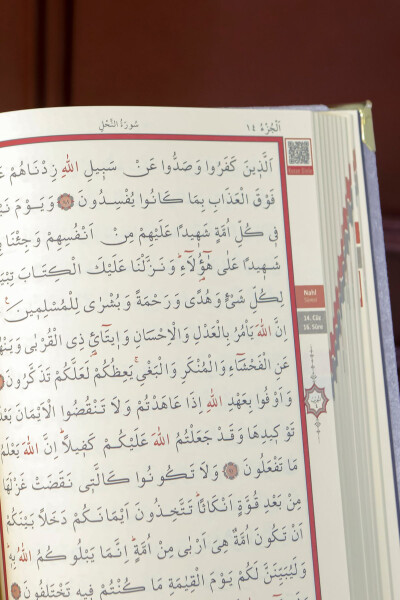 اَلْجُزْءُ ١٤
سُورَةُ النَّحْلِ
اَلَّذِينَ كَفَرُوا وَصَدُّوا عَنْ سَبِيلِ اللّٰهِ زِدْنَاهُمْ
فَوْقَ الْعَذَابِ بِمَا كَانُوا يُفْسِدُونَ ٨٨ وَيَوْمَ
فِى كُلِّ اُمَّةٍ شَهِيدًا عَلَيْهِمْ مِنْ اَنْفُسِهِمْ وَجِئْنَا
شَهِيدًا عَلٰى هٰٓؤُ۬لَٓاءِۜ وَنَزَّلْنَا عَلَيْكَ الْكِتَابَ
لِكُلِّ شَيْءٍ وَهُدًى وَرَحْمَةً وَبُشْرٰى لِلْمُسْلِمِينَ
اِنَّ اللّٰهَ يَاْمُرُ بِالْعَدْلِ وَالْاِحْسَانِ وَاِيتَٓائِ ذِى الْقُرْبٰى
عَنِ الْفَحْشَٓاءِ وَالْمُنْكَرِ وَالْبَغْيِۚ يَعِظُكُمْ لَعَلَّكُمْ تَذَكَّرُونَ
وَاَوْفُوا بِعَهْدِ اللّٰهِ اِذَا عَاهَدْتُمْ وَلَا تَنْقُضُوا الْاَيْمَانَ
تَوْكِيدِهَا وَقَدْ جَعَلْتُمُ اللّٰهَ عَلَيْكُمْ كَفِيلًاۜ اِنَّ اللّٰهَ يَعْلَمُ
مَا تَفْعَلُونَ ٩١ وَلَا تَكُونُوا كَالَّتِى نَقَضَتْ غَزْلَهَا
مِنْ بَعْدِ قُوَّةٍ اَنْكَاثًاۜ تَتَّخِذُونَ اَيْمَانَكُمْ دَخَلًا بَيْنَكُمْ
اَنْ تَكُونَ اُمَّةٌ هِىَ اَرْبٰى مِنْ اُمَّةٍۜ اِنَّمَا يَبْلُوكُمُ اللّٰهُ بِهِ
وَلَيُبَيِّنَنَّ لَكُمْ يَوْمَ الْقِيٰمَةِ مَا كُنْتُمْ فِيهِ تَخْتَلِفُونَ
Nahl
Sûresi
14. Cüz
16. Sûre